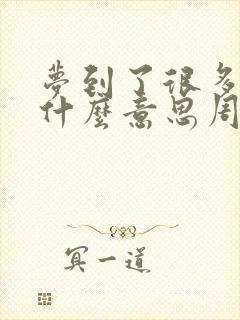 夢到了很多
什麼意思周
冥一道